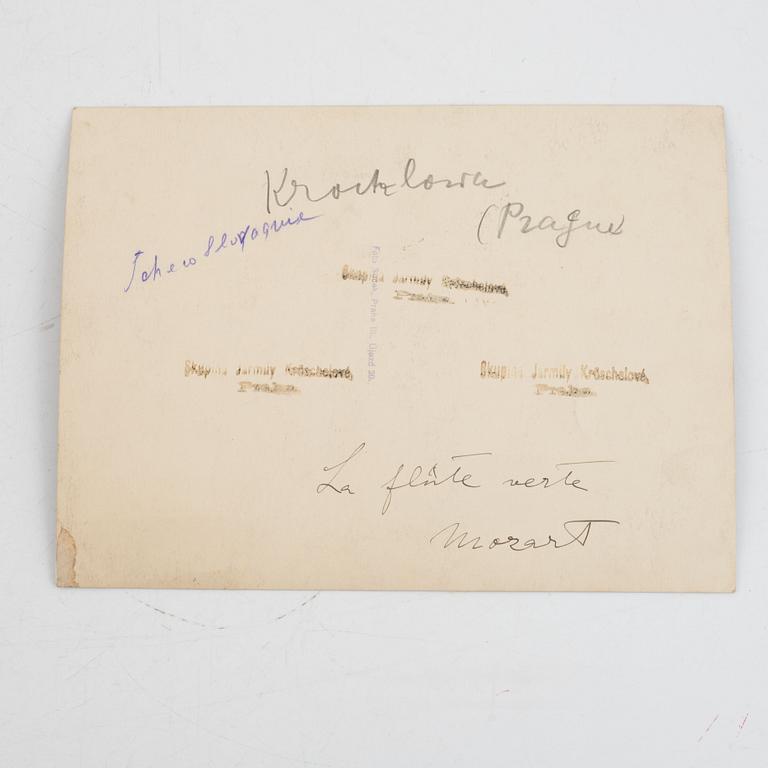 Kroctzlowa
(Prague)
Tchecoslovaquie
Skupina Jarmily Kröschelové,
Praha.
Foto Praha III., Újezd 30.
Skupina Jarmily Kröschelové,
Praha.
Skupina Jarmily Kröschelové,
Praha.
La flûte verte
Mozart